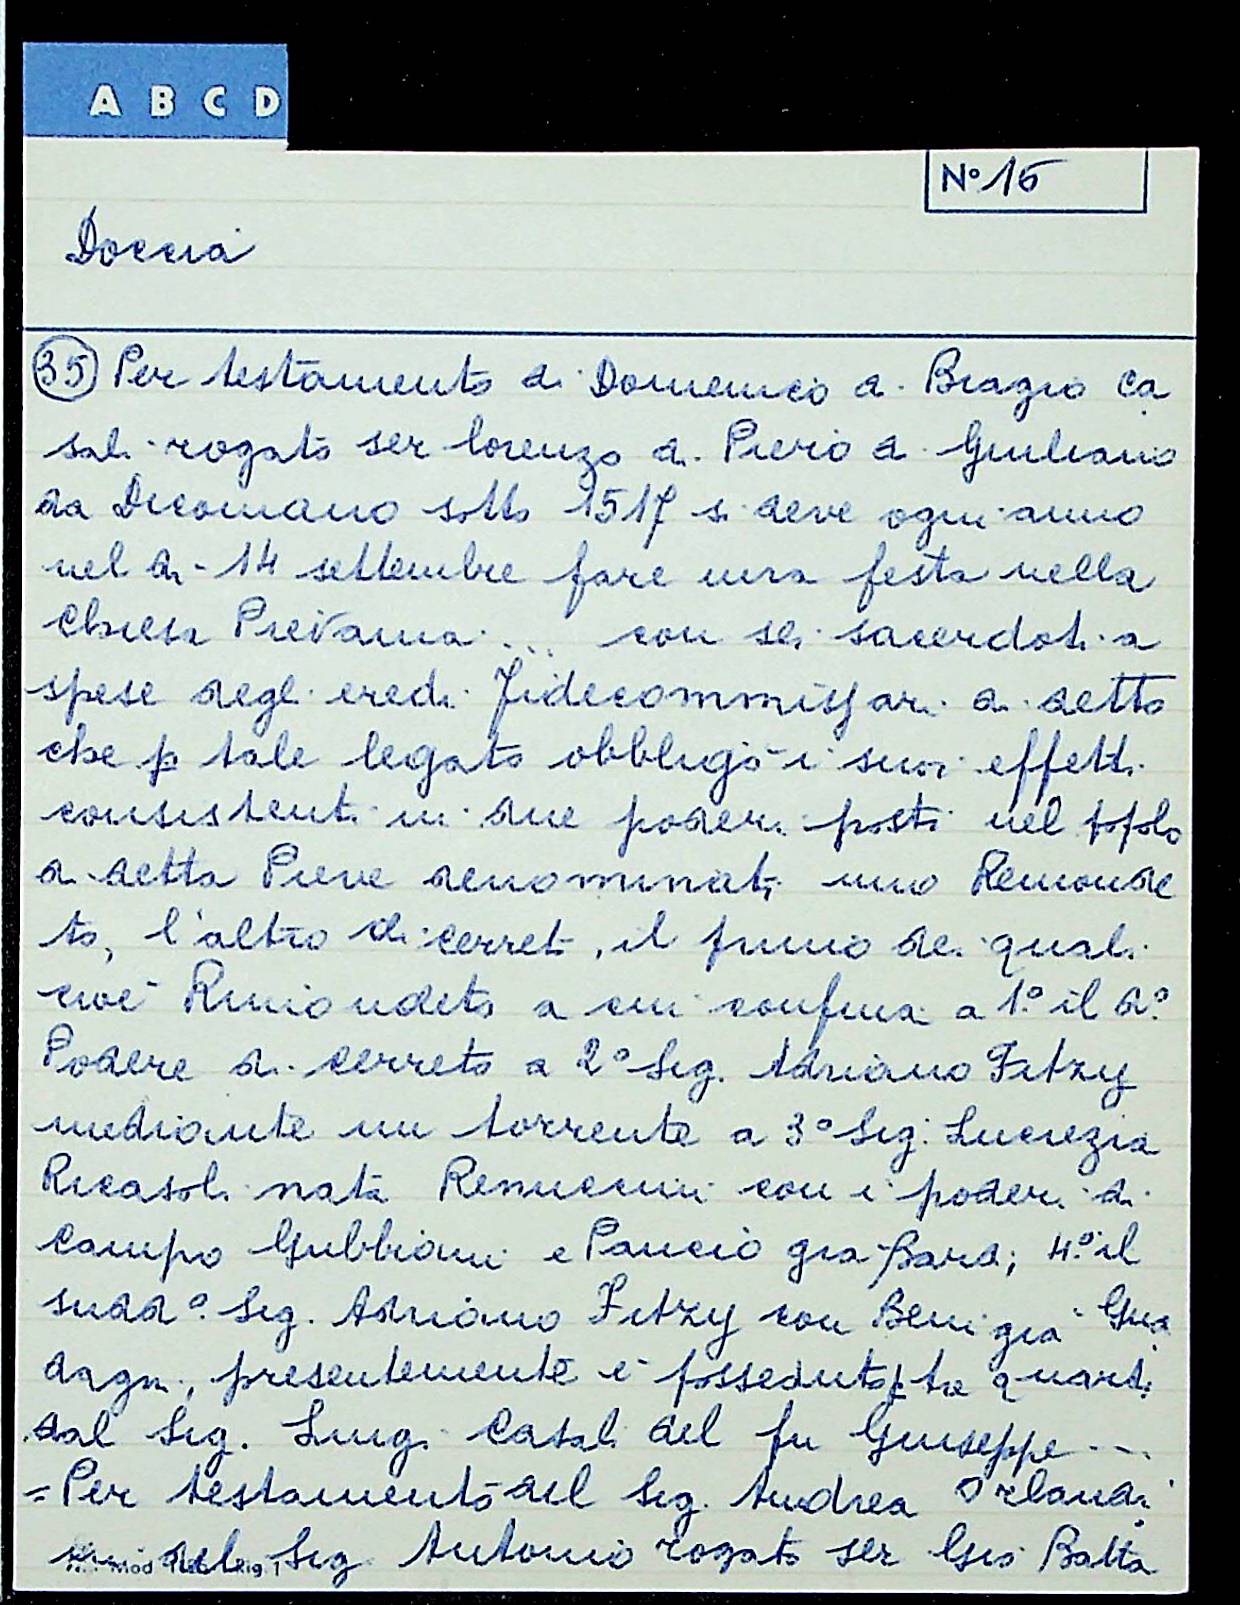 A B C D
Nº 16
Doccia
35 Per testamento di Domenico di Biagio Ca
sali rogato ser Lorenzo di Piero di Giuliano
da Dicomano sotto 1517 si deve ogni anno
nel dì 14 settembre fare una festa nella
chiesa Prevania ... con sei sacerdoti a
spese degli eredi Fidecommissari di detto
che p tale legato obbligò i suoi effetti
consistenti in due poderi posti nel popolo
di detta Pieve denominati uno Remonde
to, l'altro di cerreti, il primo dei quali
cioè Rimondeto a cui confina a 1º il dº
Podere di cerreto a 2º Sig. Adriano Fitzy
mediante un torrente a 3º Sig. Lucrezia
Ricasoli nata Renuccini con i poderi di
Campo Gubbiani e Pancio già Bardi; 4º il
suddº Sig. Adriano Fitzy con Beni già Gua
dagni, presentemente è posseduto p tre quarti
dal Sig. Luigi Casali del fu Giuseppe ...
= Per testamento del Sig. Andrea Orlandi
del Sig Antonio rogato ser Gio Batta